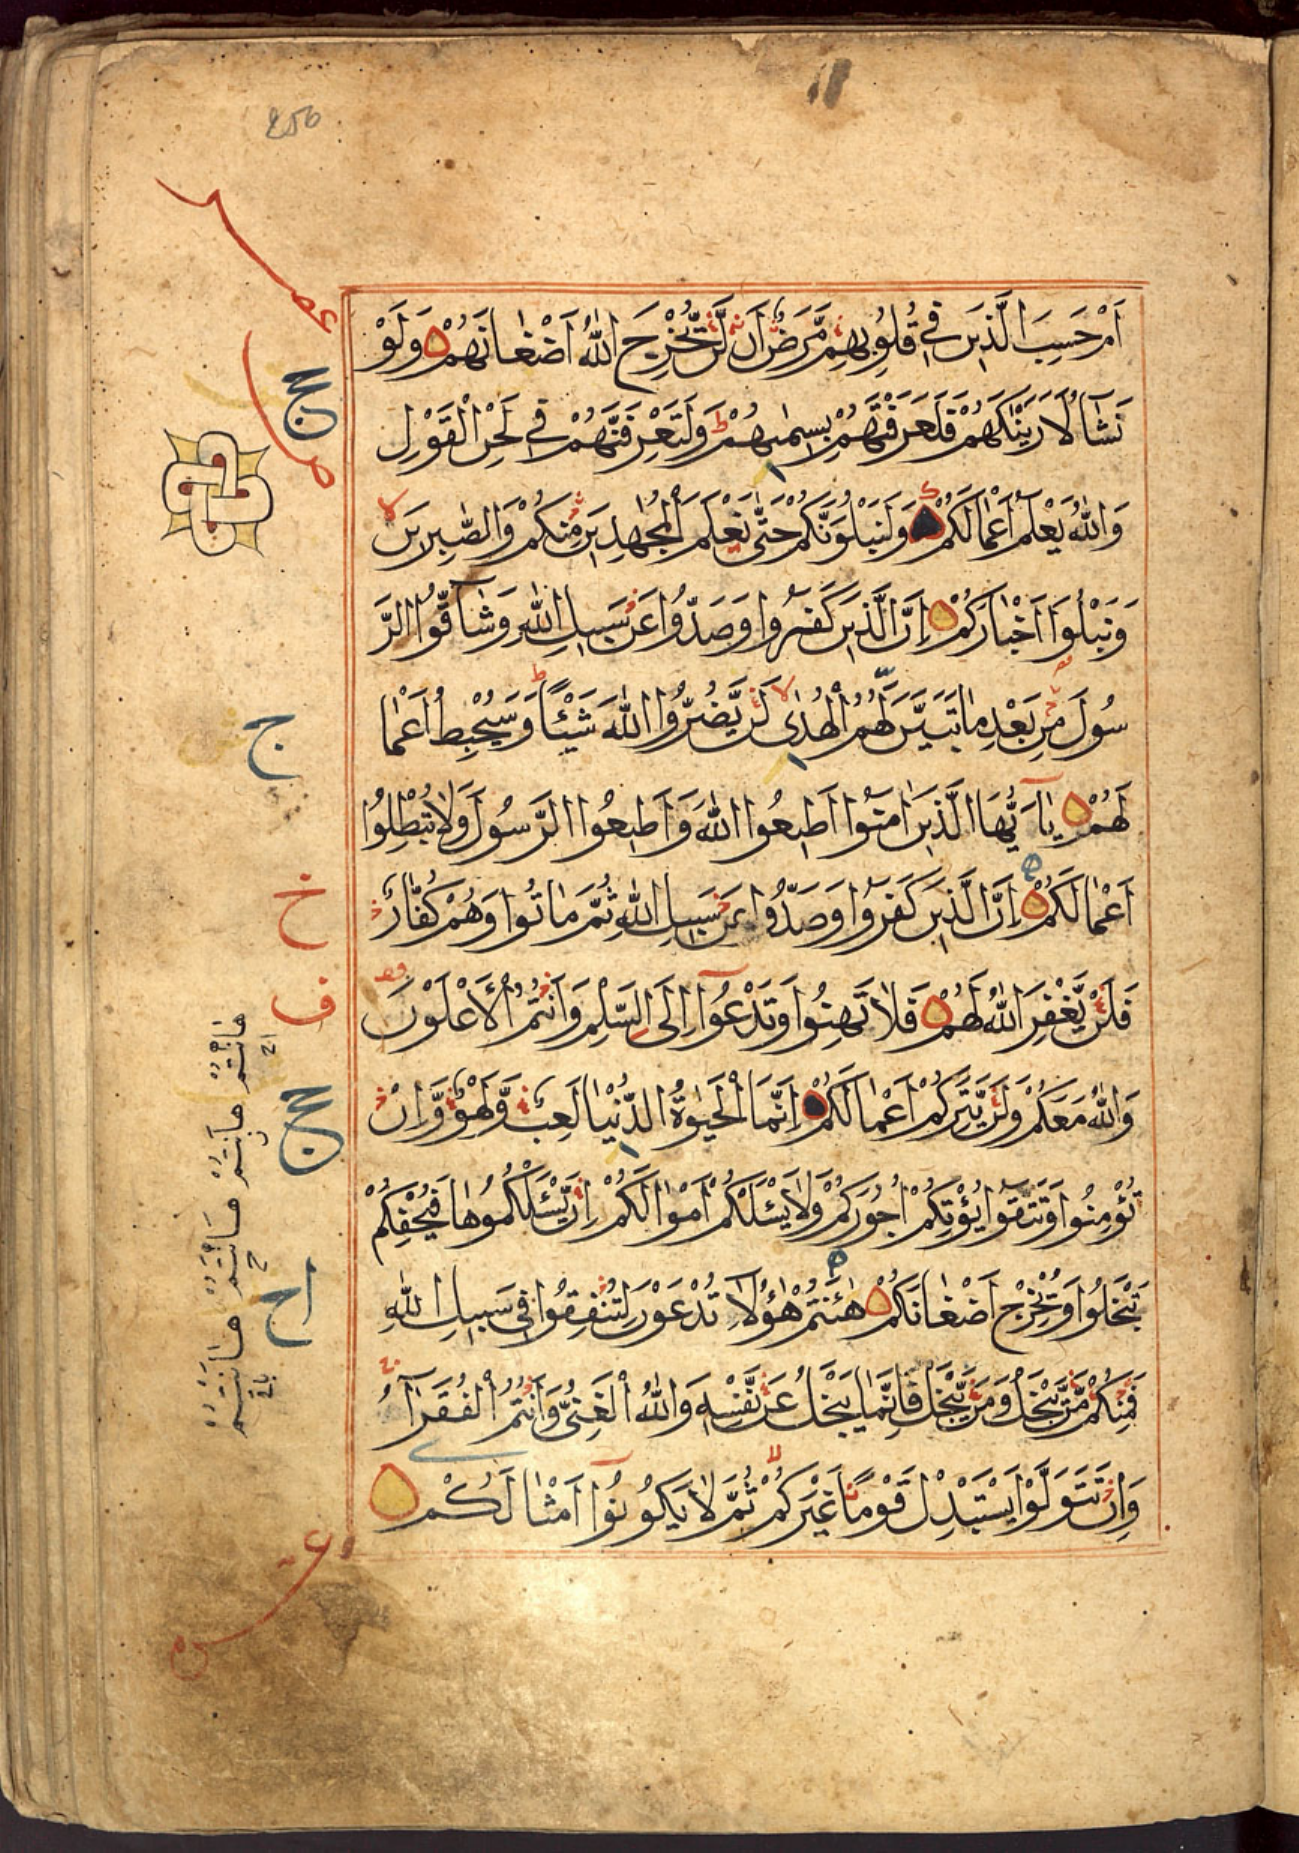 اَمْ حَسِبَ الَّذِيْنَ فِيْ قُلُوْبِهِمْ مَّرَضٌ اَنْ لَّنْ يُّخْرِجَ اللّٰهُ اَضْغَانَهُمْ وَلَوْ
نَشَآءُ لَاَرَيْنٰكَهُمْ فَلَعَرَفْتَهُمْ بِسِيْمٰىهُمْ ط وَلَتَعْرِفَنَّهُمْ فِيْ لَحْنِ الْقَوْلِ
وَاللّٰهُ يَعْلَمُ اَعْمَالَكُمْ وَلَنَبْلُوَنَّكُمْ حَتّٰى نَعْلَمَ الْمُجٰهِدِيْنَ مِنْكُمْ وَالصّٰبِرِيْنَ لا
وَنَبْلُوَا اَخْبَارَكُمْ اِنَّ الَّذِيْنَ كَفَرُوْا وَصَدُّوْا عَنْ سَبِيْلِ اللّٰهِ وَشَآقُّوا الرَّ
سُوْلَ مِنْ بَعْدِ مَا تَبَيَّنَ لَهُمُ الْهُدٰى لا لَنْ يَّضُرُّوا اللّٰهَ شَيْئًا ط وَسَيُحْبِطُ اَعْمَا
لَهُمْ يٰٓاَيُّهَا الَّذِيْنَ اٰمَنُوْٓا اَطِيْعُوا اللّٰهَ وَاَطِيْعُوا الرَّسُوْلَ وَلَا تُبْطِلُوْٓا
اَعْمَالَكُمْ اِنَّ الَّذِيْنَ كَفَرُوْا وَصَدُّوْا عَنْ سَبِيْلِ اللّٰهِ ثُمَّ مَاتُوْا وَهُمْ كُفَّارٌ
فَلَنْ يَّغْفِرَ اللّٰهُ لَهُمْ فَلَا تَهِنُوْا وَتَدْعُوْٓا اِلَى السَّلْمِ وَاَنْتُمُ الْاَعْلَوْنَ
وَاللّٰهُ مَعَكُمْ وَلَنْ يَّتِرَكُمْ اَعْمَالَكُمْ اِنَّمَا الْحَيٰوةُ الدُّنْيَا لَعِبٌ وَّلَهْوٌ وَّاِنْ
تُؤْمِنُوْا وَتَتَّقُوْا يُؤْتِكُمْ اُجُوْرَكُمْ وَلَا يَسْئَلْكُمْ اَمْوَالَكُمْ اِنْ يَّسْئَلْكُمُوْهَا فَيُحْفِكُمْ
تَبْخَلُوْا وَيُخْرِجْ اَضْغَانَكُمْ هٰٓاَنْتُمْ هٰٓؤُلَآءِ تُدْعَوْنَ لِتُنْفِقُوْا فِيْ سَبِيْلِ اللّٰهِ
فَمِنْكُمْ مَّنْ يَّبْخَلُ وَمَنْ يَّبْخَلْ فَاِنَّمَا يَبْخَلُ عَنْ نَّفْسِهٖ وَاللّٰهُ الْغَنِيُّ وَاَنْتُمُ الْفُقَرَآءُ
وَاِنْ تَتَوَلَّوْا يَسْتَبْدِلْ قَوْمًا غَيْرَكُمْ ثُمَّ لَا يَكُوْنُوْٓا اَمْثَالَكُمْ
ج
خ
ف